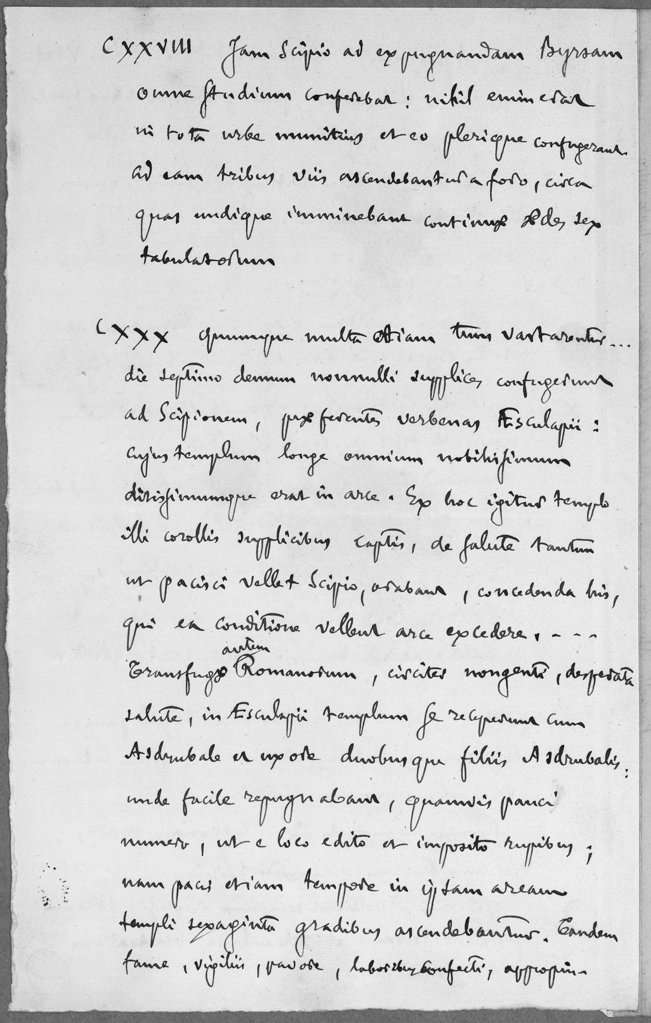 CXXVIII Jam Scipio ad expugnandam Byrsam
omne studium conferebat: nihil eminebat
in tota urbe munitius et eo plerique confugerant.
Ad eam tribus viis ascendebantur a foro, circa
quas undique imminebant continuæ ædes sex
tabulatorum
CXXX Quumque multa etiam tum vastarentur...
die septimo demum nonnulli supplices confugerunt
ad Scipionem, præferentes verbenas Æsculapii:
cujus templum longe omnium nobilissimum
ditissimumque erat in arce. Ex hoc igitur templo
illi corollis supplicibus captis, de salute tantum
ut pacisci vellet Scipio, orabant, concedenda his,
qui ea conditione vellent arce excedere. - - -
Transfugæ autem Romanorum, circiter nongenti, desperata
salute, in Æsculapii templum se receperunt cum
Asdrubale et uxore duobusque filiis Asdrubalis:
unde facile repugnabant, quamvis pauci
numero, ut e loco edito et imposito rupibus;
nam pacis etiam tempore in ipsam aream
templi sexaginta gradibus ascendebantur. Tandem
fame, vigiliis, pavore, laboribus confecti, appropin-